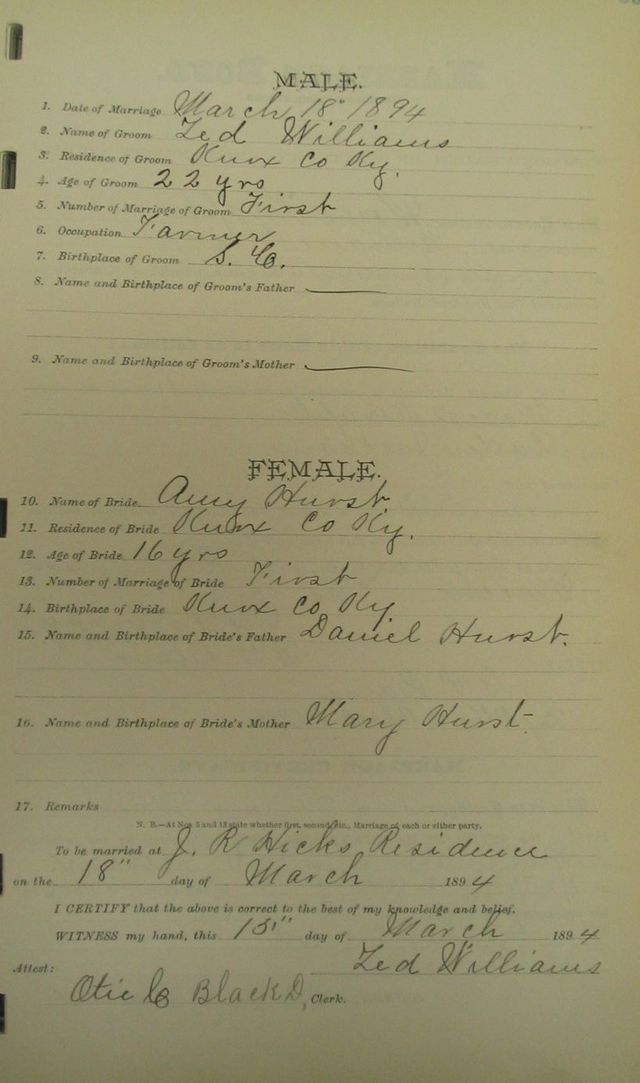 MALE.
1. Date of Marriage March 18" 1894
2. Name of Groom Zed Williams
3. Residence of Groom Knox Co Ky.
4. Age of Groom 22 yrs
5. Number of Marriage of Groom First
6. Occupation Farmer
7. Birthplace of Groom S. C.
8. Name and Birthplace of Groom's Father
9. Name and Birthplace of Groom's Mother
FEMALE.
10. Name of Bride Amy Hurst
11. Residence of Bride Knox Co Ky.
12. Age of Bride 16 yrs
13. Number of Marriage of Bride First
14. Birthplace of Bride Knox Co Ky
15. Name and Birthplace of Bride's Father Daniel Hurst.
16. Name and Birthplace of Bride's Mother Mary Hurst.
17. Remarks
N. B.—At Nos 5 and 13 state whether first, second, etc., Marriage of each or either party.
To be married at J. R Hicks Residence
on the 18" day of March 1894
I CERTIFY that the above is correct to the best of my knowledge and belief.
WITNESS my hand, this day of March 1894
Attest: Zed Williams
Otie C Black D, Clerk.